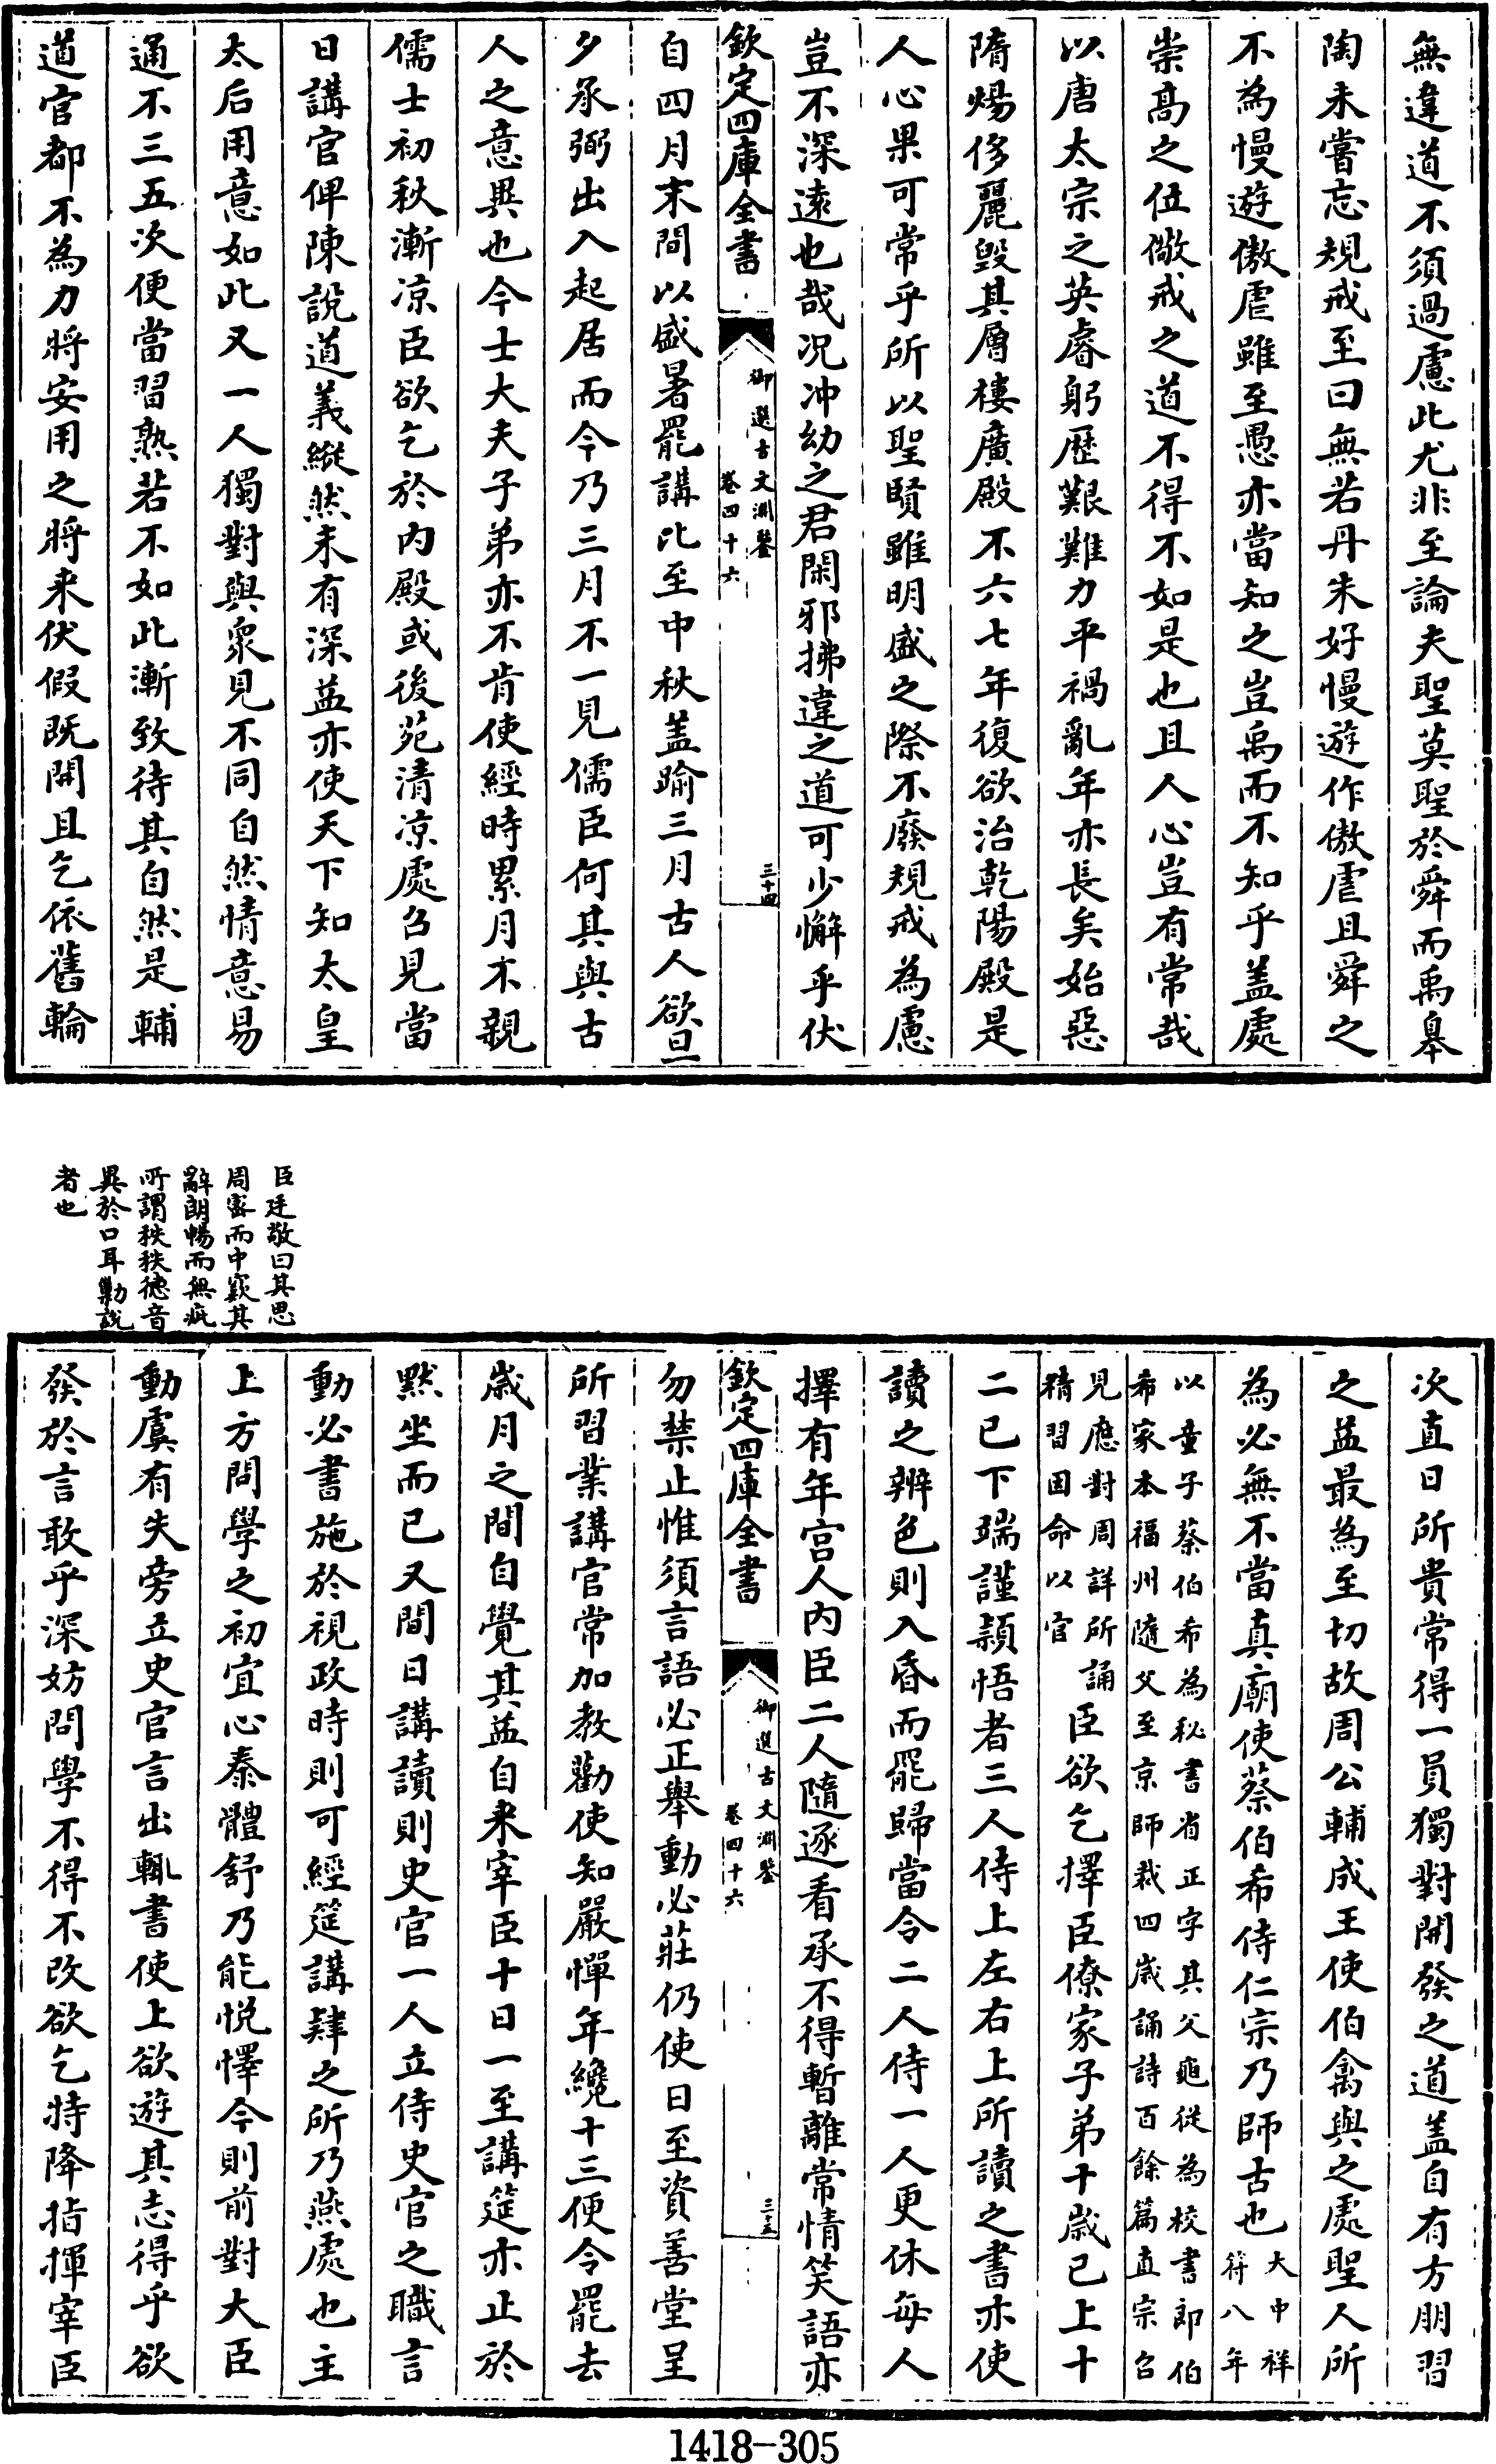 無違道不須過慮此尤非至論夫聖莫聖於舜而禹皋
陶未嘗忘規戒至曰無若丹朱好慢遊作傲虐且舜之
不為慢遊傲虐雖至愚亦當知之豈禹而不知乎盖處
崇髙之位儆戒之道不得不如是也且人心豈有常哉
以唐太宗之英睿躬歴艱難力平禍亂年亦長矣始惡
隋煬侈麗毁其層樓廣殿不六七年復欲治乾陽殿是
人心果可常乎所以聖賢雖明盛之際不廢規戒為慮
豈不深逺也哉况冲幼之君閑邪拂違之道可少懈乎伏
欽定四庫全書
御選古文淵鑒
卷四十六
三十四
自四月末間以盛暑罷講比至中秋盖踰三月古人欲旦
夕承弼出入起居而今乃三月不一見儒臣何其與古
人之意異也今士大夫子弟亦不肯使經時累月不親
儒士初秋漸凉臣欲乞於内殿或後苑清凉處召見當
日講官俾陳說道義縱然未有深益亦使天下知太皇
太后用意如此又一人獨對與衆見不同自然情意易
通不三五次便當習熟若不如此漸致待其自然是輔
道官都不為力將安用之將来伏假既開且乞依舊輪
臣廷敬曰其思
周密而中窾其
辭朗暢而無疵
所謂秩秩德音
異於口耳勦說
者也
次直日所貴常得一員獨對開發之道盖自有方朋習
之益最為至切故周公輔成王使伯禽與之處聖人所
為必無不當真廟使蔡伯希侍仁宗乃師古也大中祥
符八年
以童子蔡伯希為秘書省正字其父龜從為校書郎伯
希家本福州隨父至京師裁四歳誦詩百餘篇真宗召
見應對周詳所誦
精習因命以官
臣欲乞擇臣僚家子弟十歳已上十
二已下端謹頴悟者三人侍上左右上所讀之書亦使
讀之辨色則入昏而罷歸當令二人侍一人更休每人
擇有年宫人内臣二人隨逐看承不得暫離常情笑語亦
欽定四庫全書
御選古文淵鑒
卷四十六
三十五
勿禁止惟須言語必正舉動必莊仍使日至資善堂呈
所習業講官常加教勸使知嚴憚年纔十三便令罷去
歳月之間自覺其益自来宰臣十日一至講筵亦止於
黙坐而已又間日講讀則史官一人立侍史官之職言
動必書施於視政時則可經筵講肄之所乃燕處也主
上方問學之初宜心泰體舒乃能悦懌今則前對大臣
動虞有失旁立史官言出輒書使上欲遊其志得乎欲
發於言敢乎深妨問學不得不改欲乞特降指揮宰臣
1418-305